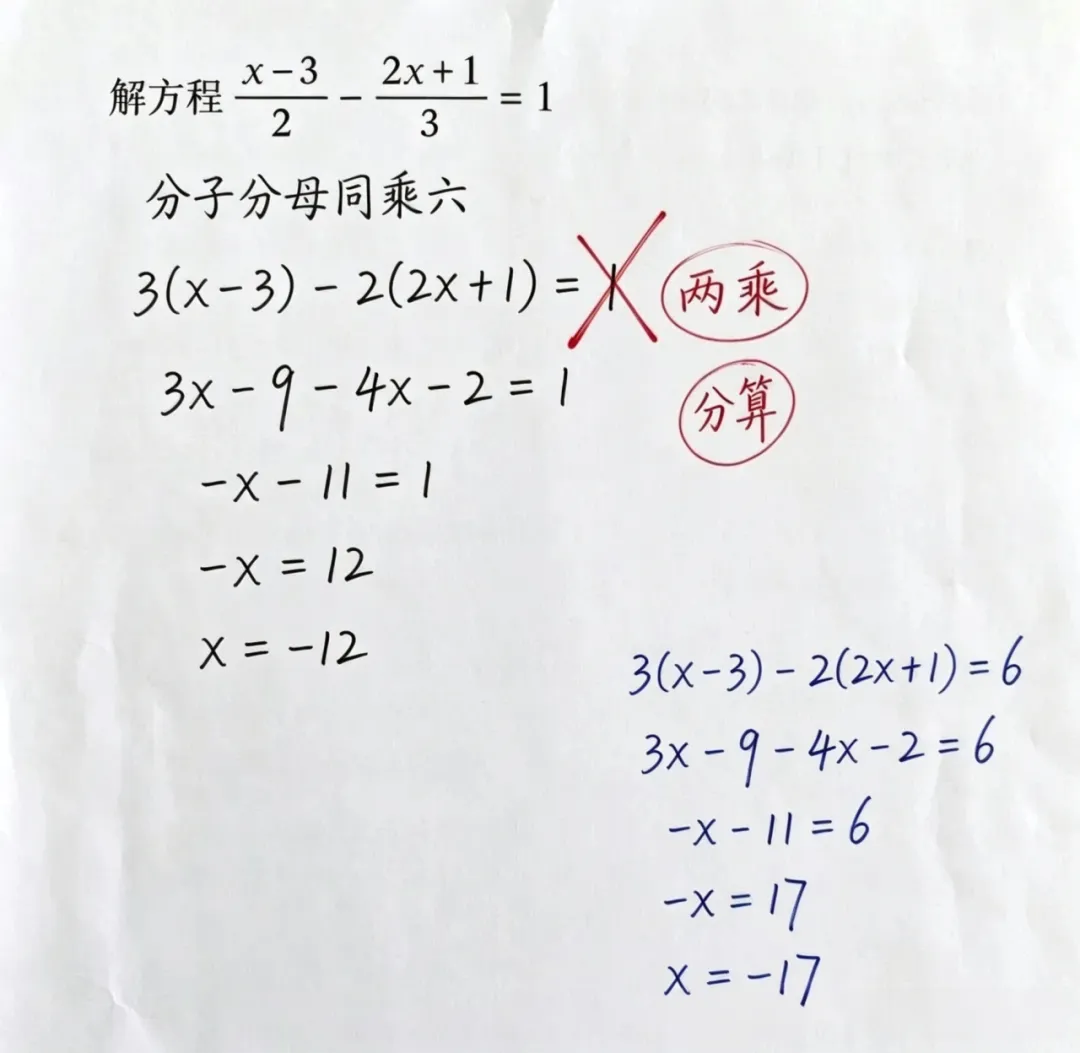 解方程 \frac{x-3}{2} - \frac{2x+1}{3} = 1
分子分母同乘六
3(x-3)-2(2x+1)=1
两乘
3x-9-4x-2=1
分算
-x-11=1
-x=12
x=-12
3(x-3)-2(2x+1)=6
3x-9-4x-2=6
-x-11=6
-x=17
x=-17